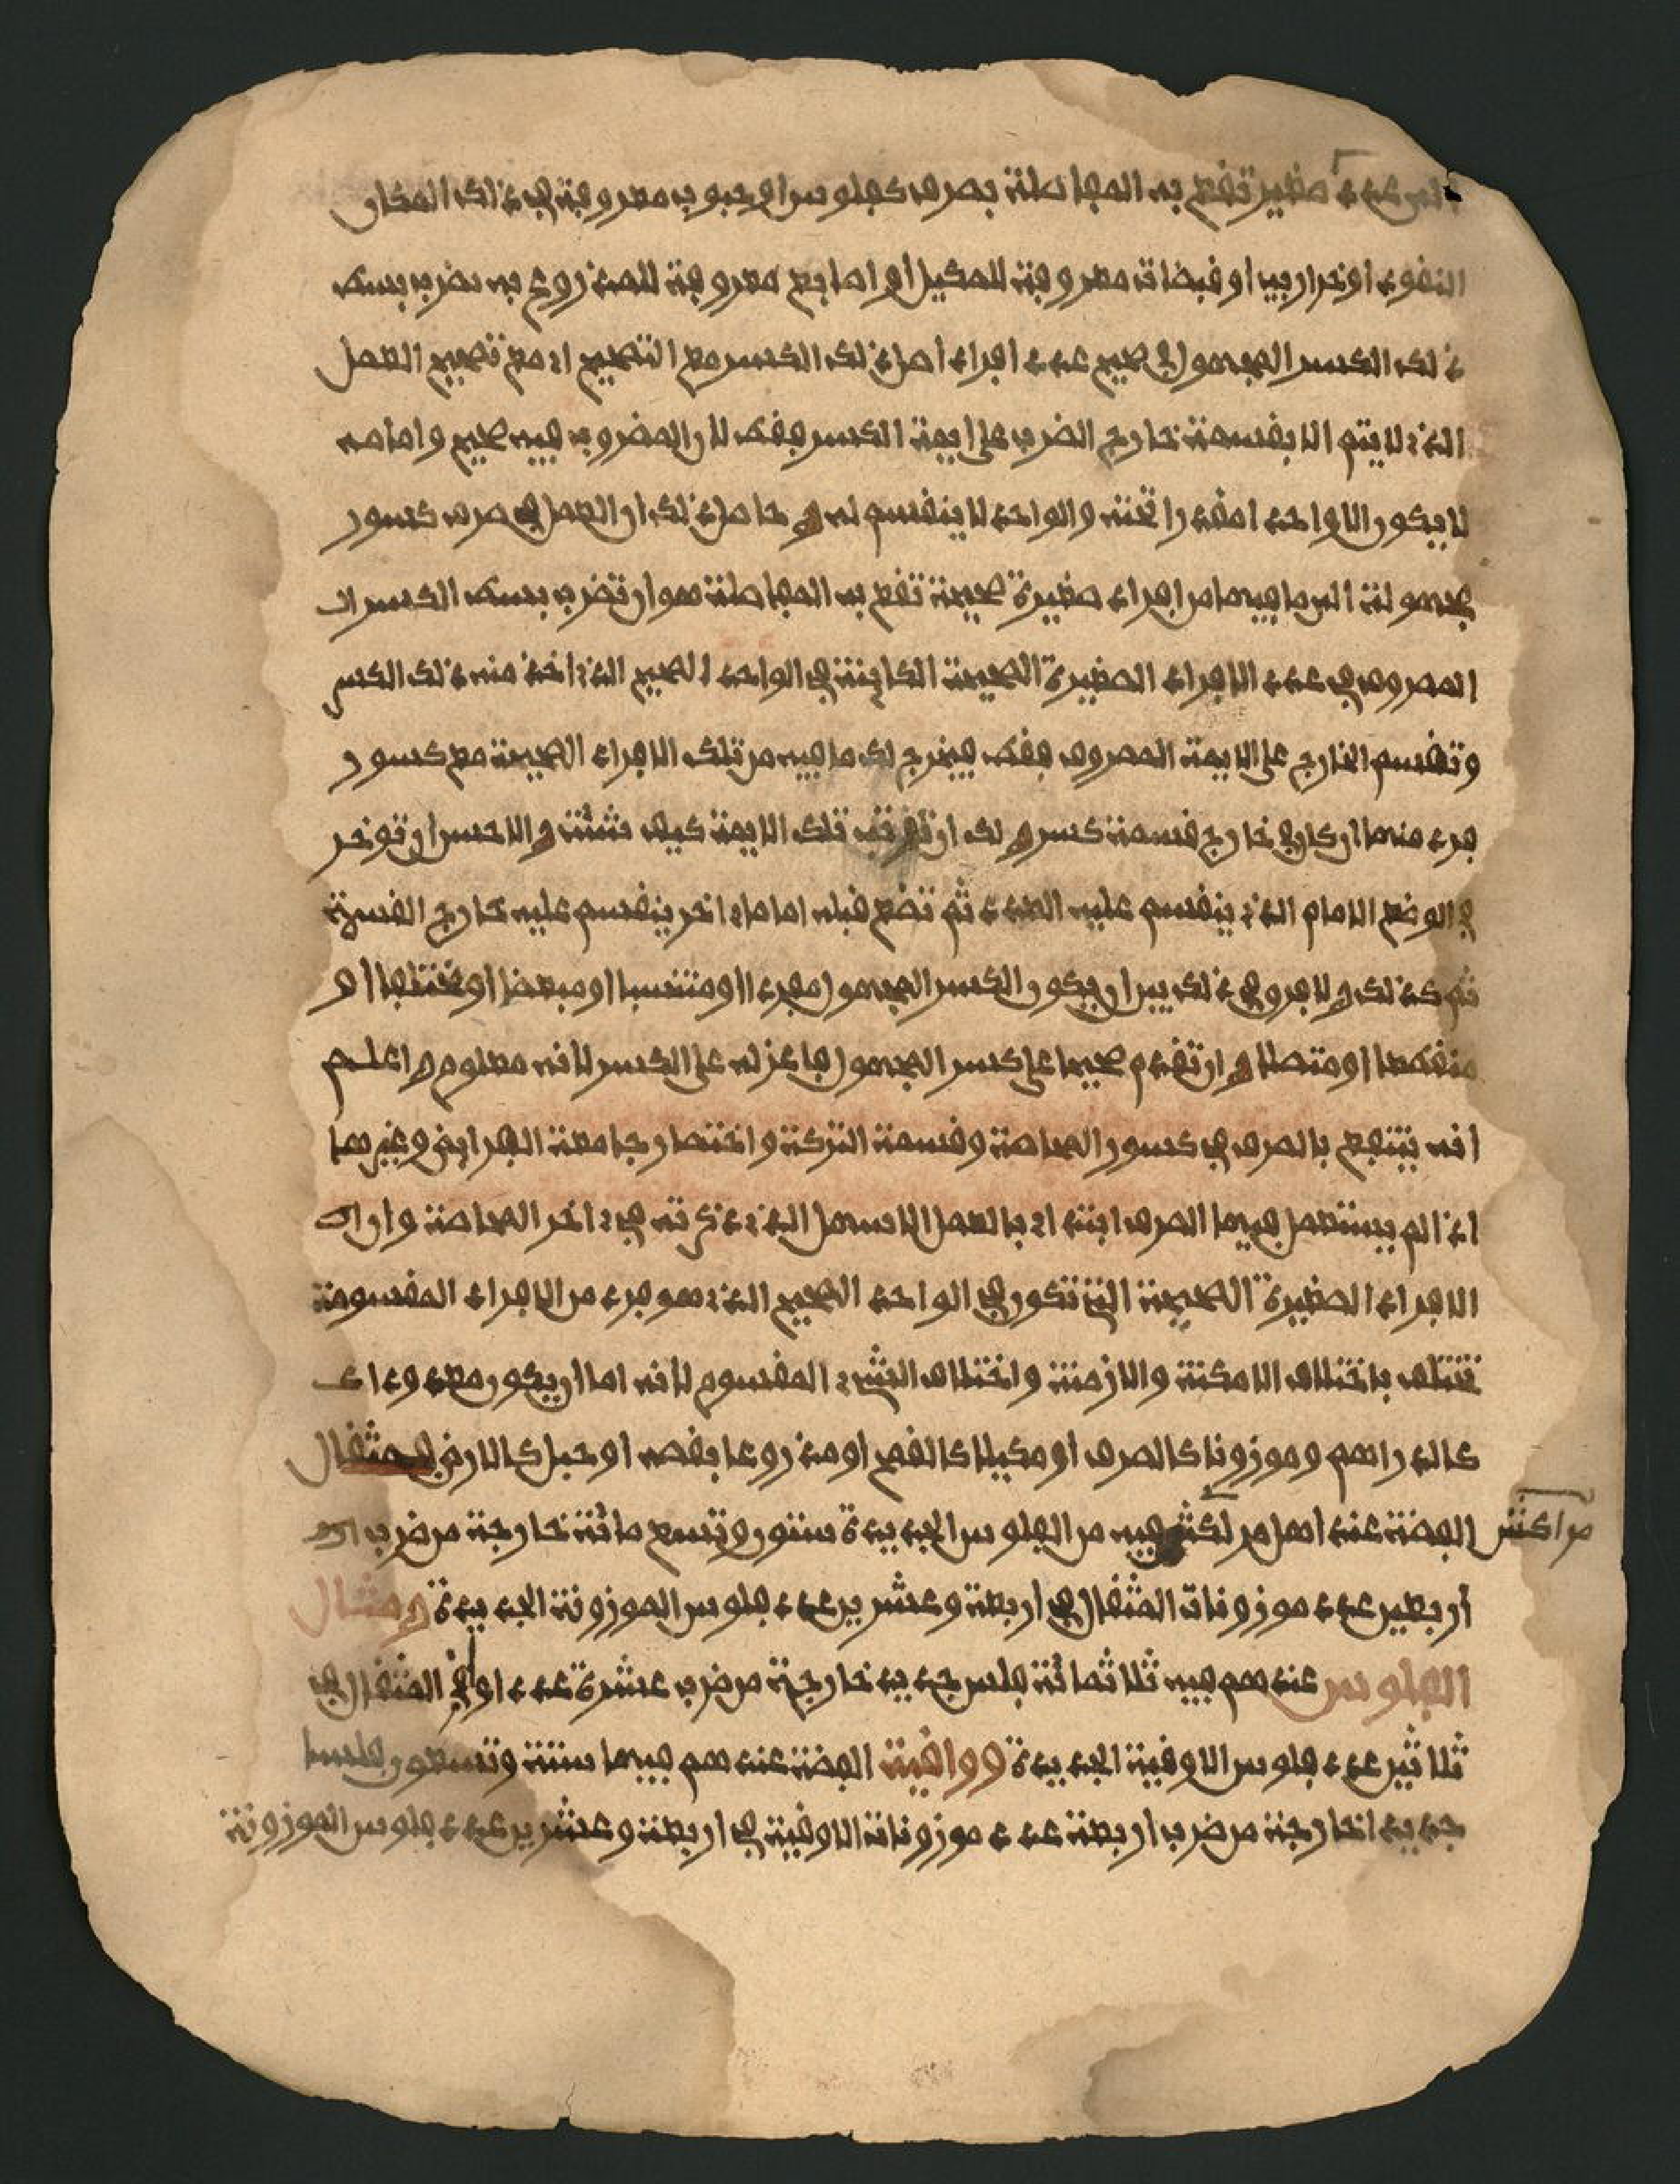 الى عدد صغير تقع به المفاصلة بصرف كفلوس او حبوب معروفة في ذلك المكان
النقود او خراريب او قبضات معروفة للمكيل او اصابع معروفة للمذروع به بضرب بسط
ذلك الكسر المجهول في صحيح عدد افراد اصل ذلك الكسر مع التصحيح اي مع تصحيح العمل
الذي لا يتم الا بقسمة خارج الضرب على ايمة الكسر فقط لان المضروب فيه صحيح وامامه
لا يكون الا واحدا مقدرا تحته والواحد لا ينقسم له حاصل ذلك ان العمل في صرف كسور
مجهولة الى ما فيها من افراد صغيرة صحيحة تقع به المفاصلة هو ان تضرب بسط الكسر
المصروف في عدد الافراد الصغيرة الصحيحة الكاينة في الواحد الصحيح الذي اخذ منه ذلك الكسر
وتقسم الخارج على الايمة المصروف فقط فيخرج لك ما فيه من تلك الافراد الصحيحة مع كسور
فرد منها ان كان في خارج قسمة كسر و لك ان ترتب تلك الايمة كيف شئت والاحسن ان توخر
في الوضع الامام الذي ينقسم عليه العدد ثم تضع قبله اماما اخر ينقسم عليه خارج القسمة
ثم كذلك ولا فرق في ذلك بين ان يكون الكسر المجهول مفردا او منتسبا او مبعضا او مختلفا او
منقطعا او متصلا و ان تقدم صحيحا على كسر المجهول فاعزله على الكسر لانه معلوم واعلم
انه ينتفع بالصرف في كسور المحاصة وقسمة التركة واختصار جامعة الفرايض وغيرها
اذا لم يستعمل فيها الصرف ابتداء بالعمل الاسهل الذي ذكرته في اخر المحاصة وان
الافراد الصغيرة الصحيحة التي تكون في الواحد الصحيح الذي هو فرد من الافراد المقسومة
تختلف باختلاف الامكنة والازمنة واختلاف الشيء المقسوم لانه اما ان يكون معدودا
كالدراهم وموزونا كالصرف او مكيلا كالقمح او مذروعا بقصبة او حبل كالارض فمثقال
مراكش
الفضة عند اهل مراكش فيه من الفلوس الجديدة ستون وتسع مائة خارجة من ضرب
اربعين عدد موزونات المثقال في اربعة وعشرين عدد فلوس الموزونة الجديدة ومثقال
الفلوس عندهم فيه ثلاثمائة فلس جديد خارجة من ضرب عشرة عدد اواقي المثقال في
ثلاثين عدد فلوس الاوقية الجديدة وواقية الفضة عندهم فيها ستة وتسعون فلسا
جديدا خارجة من ضرب اربعة عدد موزونات الاوقية في اربعة وعشرين عدد فلوس الموزونة